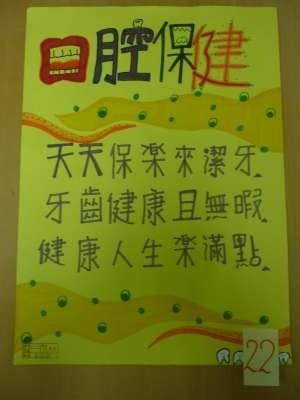 口腔保健
天天保樂來潔牙.
牙齒健康且無暇.
健康人生樂滿點.
22